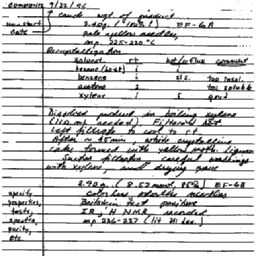 comments 9/22/96
crude wgt of product
2.40g. (~101%) EF-6A
pale yellow needles,
mp. 225-230 °C
Recrystallization
solvent rt hot/reflux comment
hexane i
benzene i sl s. too insol.
acetone s too soluble
xylene i s good
Dissolved product in boiling xylene
(110 mL needed) Filtered hot
Left filtrate to cool to rt
After ~ 45 min white crystalline
cake formed with yellow moth. liquor
Suction filtration, careful washings
with xylene, and drying gave
2.90g. (8.57 mmol, 85%) EF-6B
specify colorless needles
properties, Beilstein test positive
tests, IR, H NMR recorded
spectra, mp. 236-237 (lit
purity,
etc.